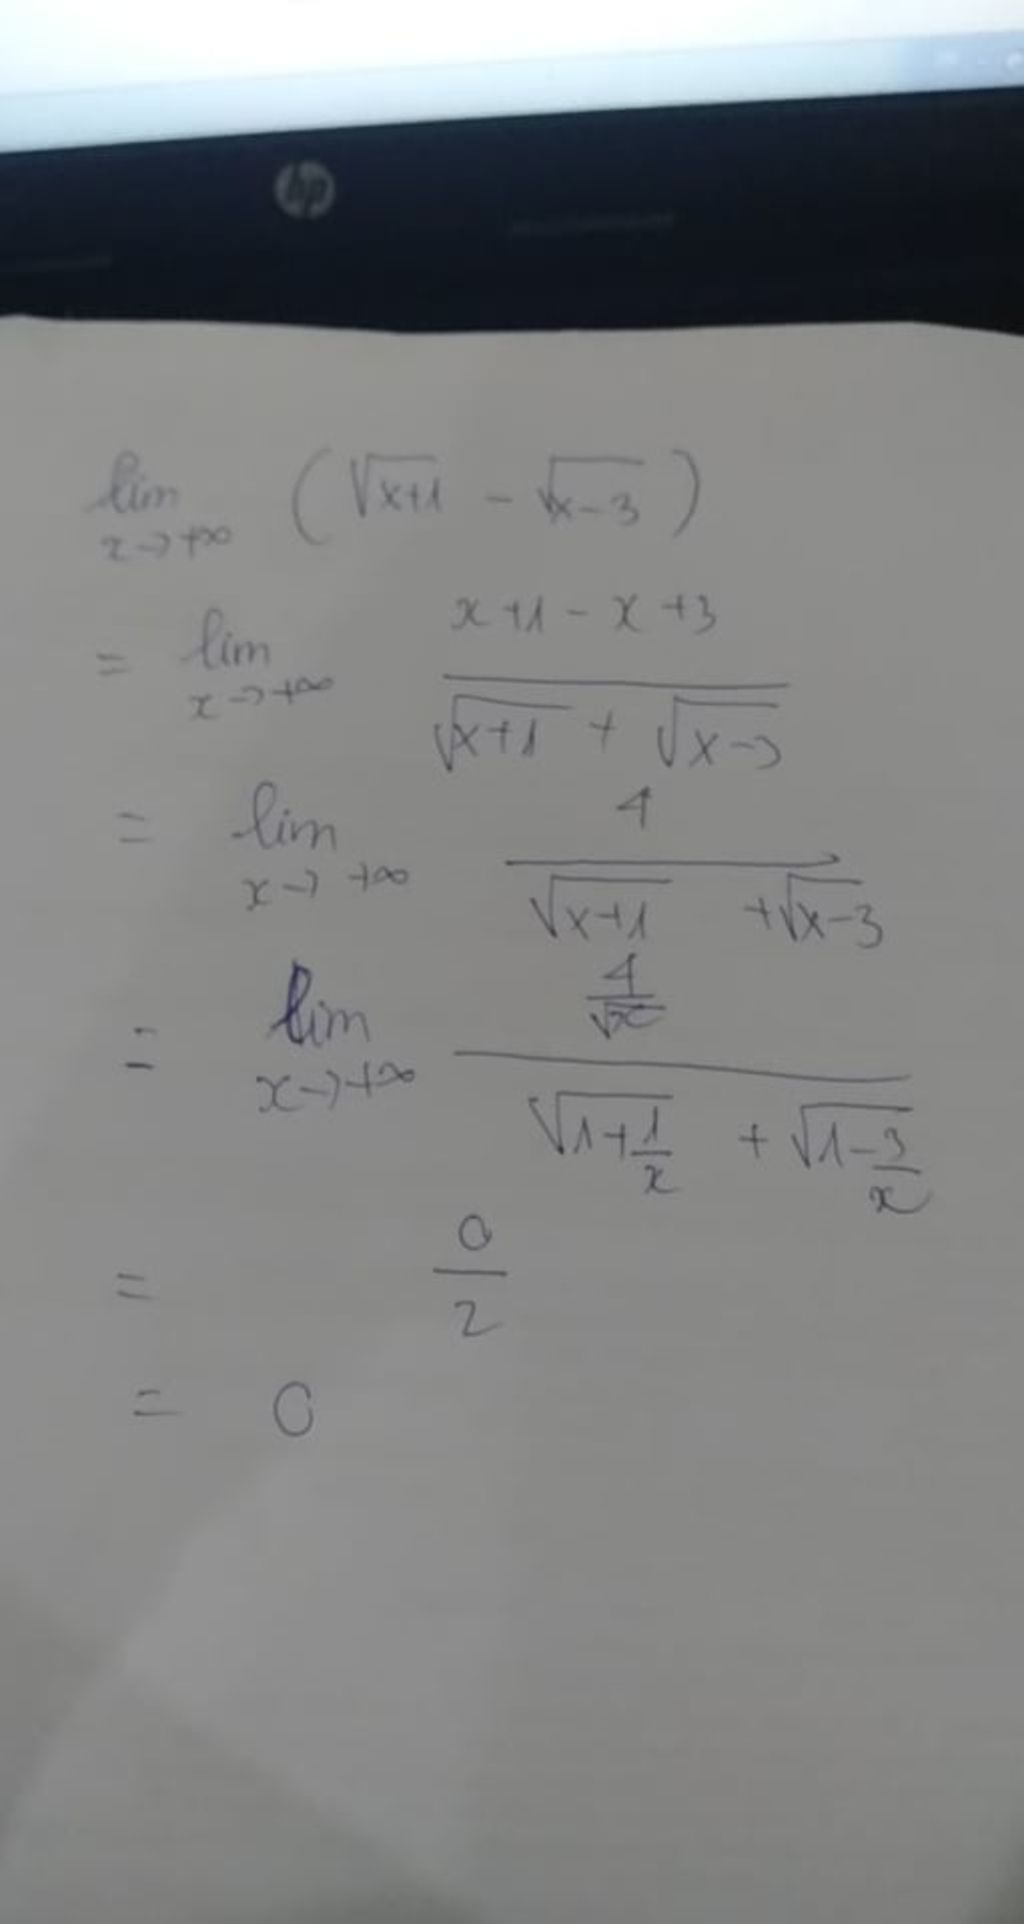 hp
lim x→+∞ (√(x+1) - √(x-3))
= lim x→+∞ (x+1-x+3)/(√(x+1) + √(x-3))
= lim x→+∞ 4/(√(x+1) + √(x-3))
= lim x→+∞ (4/√x)/(√(1+1/x) + √(1-3/x))
= 0/2
= 0